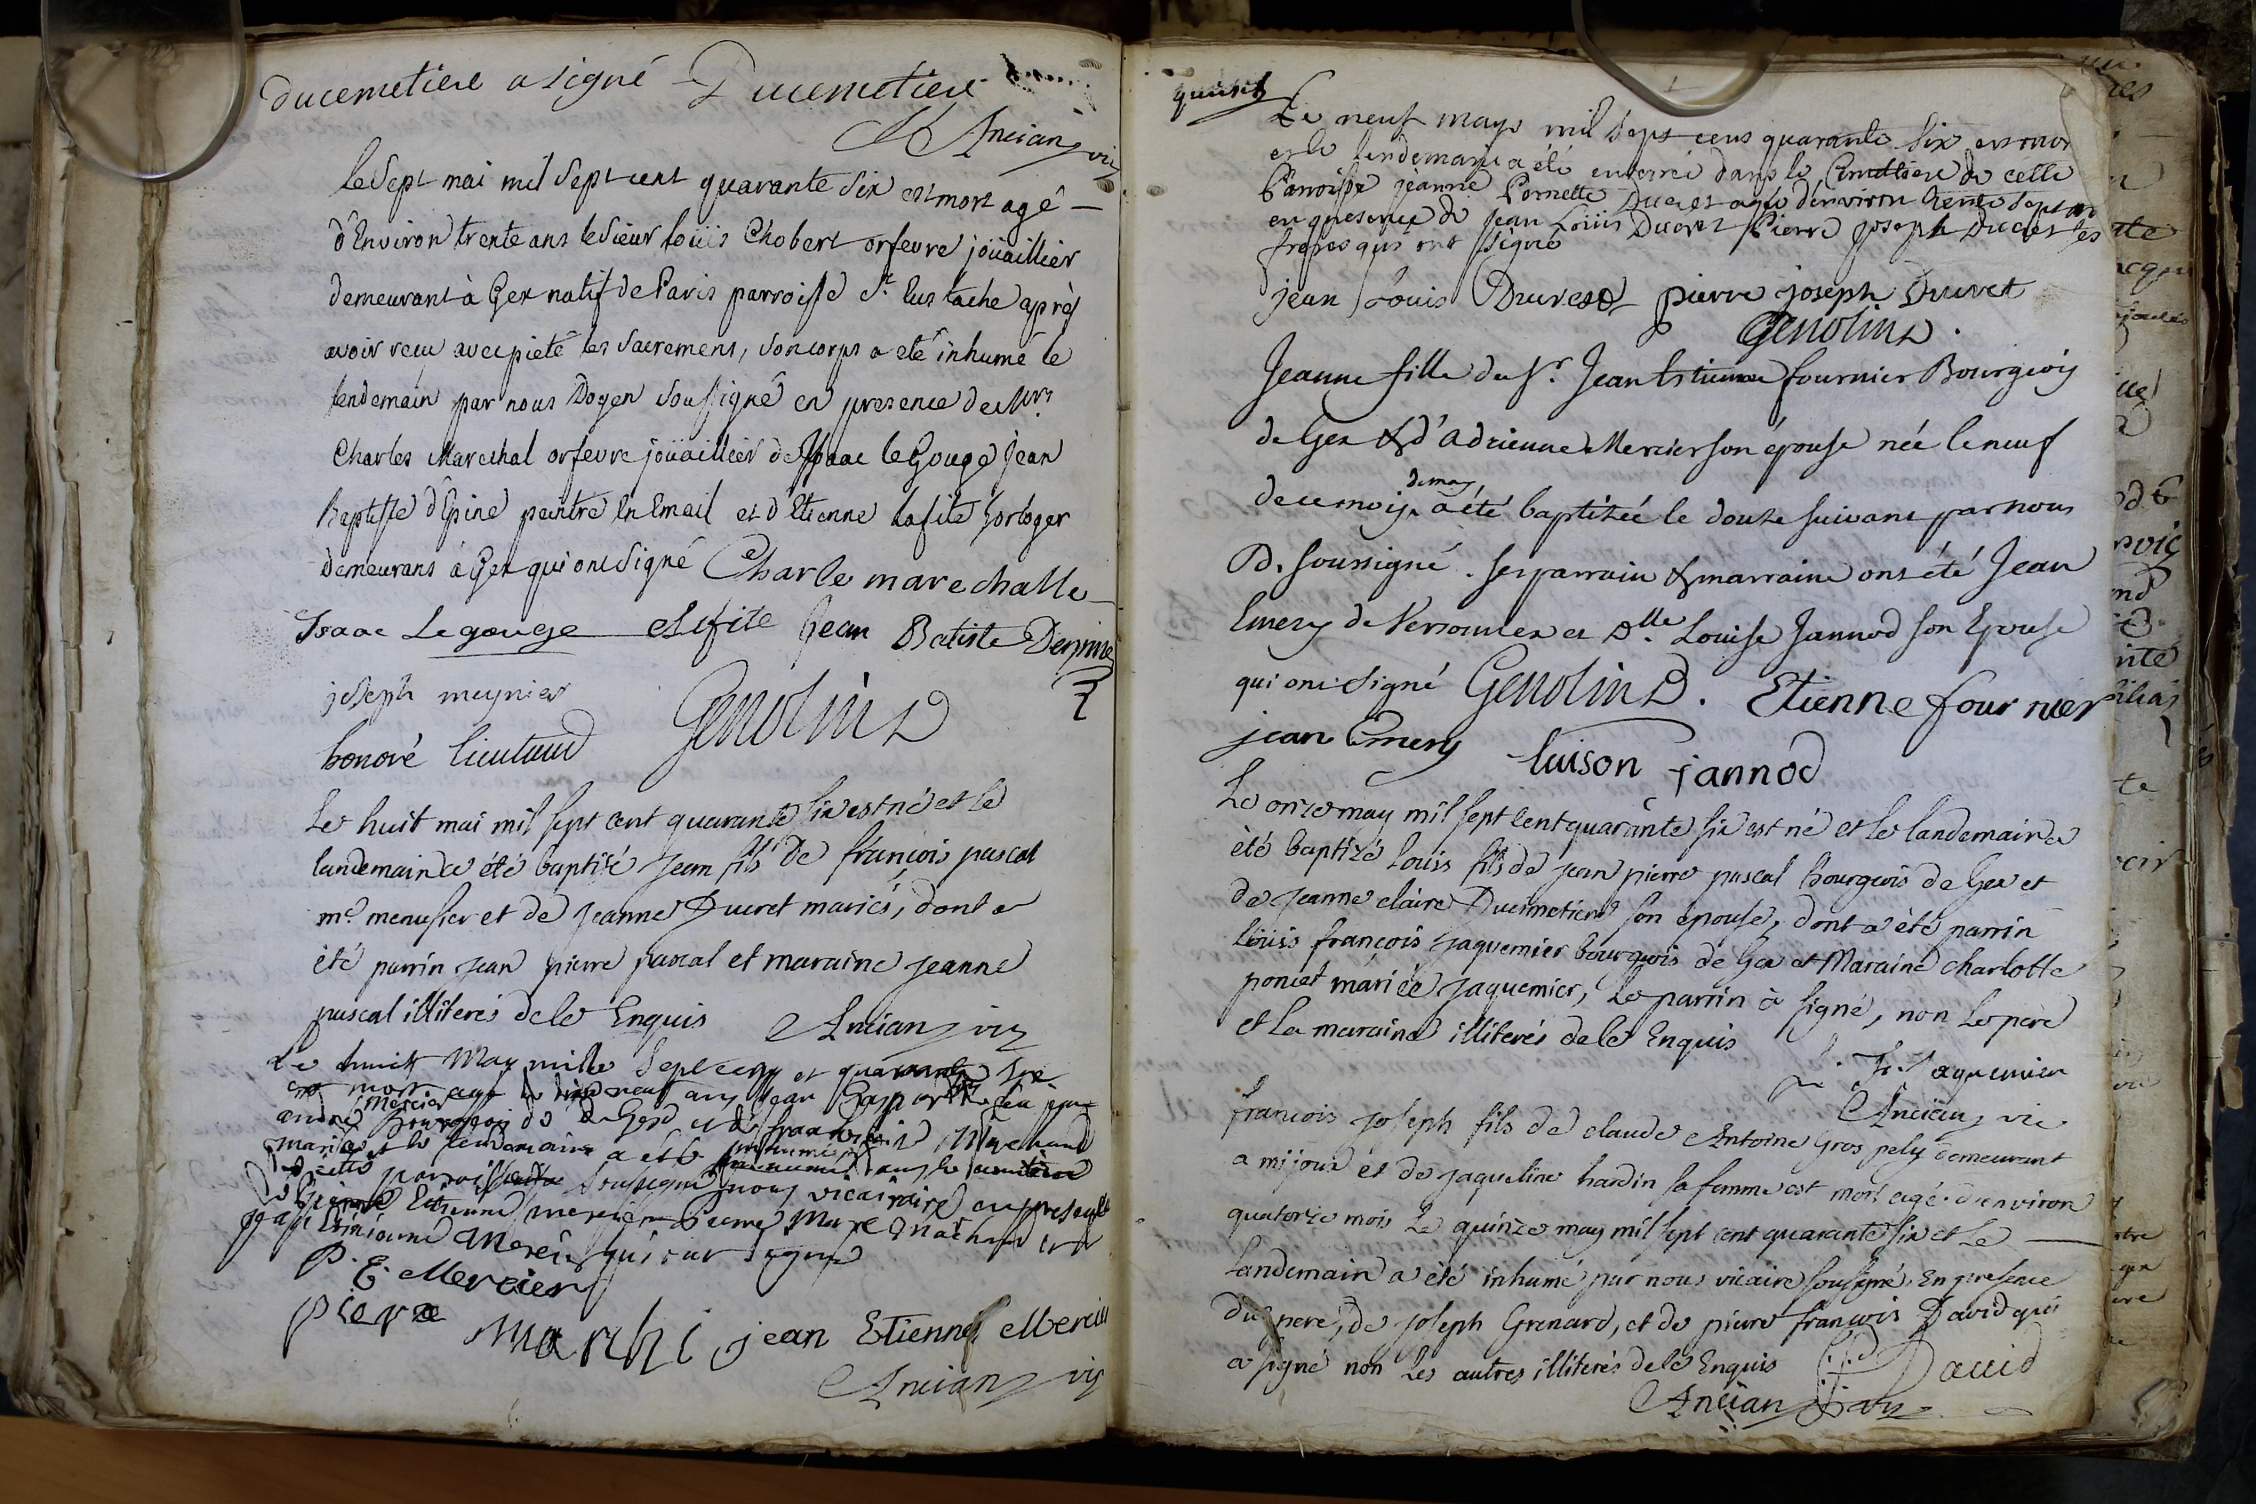 ducemetiere a signé Ducemetiere
Ancian vic
le Sept mai mil Sept cent quarante Six est mort agé
d'Environ trente ans le Sieur Loüis Chobert orfevre joüaillier
demeurant à Gex natif de Paris parroisse St. Eustache après
avoir reçu avec pieté les Sacremens, Son corps a eté inhumé le
lendemain par nous Doyen Soussigné en presence de Mrs.
Charles Marechal orfevre joüaillier de Isaac le Gouge Jean
Baptiste d'Epine peintre En Email et d'Etienne Lafite horloger
demeurans à Gex qui ont Signé Charle marechalle
Isaac Legouge Elafite Jean Batiste Depine
joseph meynier
honoré lieutaud Genolin D
Le huit mai mil sept cent quarante six est né et le
landemain a été baptisé Jean fils de françois pascal
me. menusier et de Jeanne Ducret mariés, dont a
été parrin Jean pierre pascal et maraine Jeanne
pascal illiterés de le Enquis Ancian vic
Le huict May mille Sept cens et quarante Six
est mort agé de dix neuf ans Jean Gaspar feu
andré Mercier Bourgeois de Gex
mariés et le lendemain a été inhumé dans le cimetiere
de cette parroisse soussigné nous vicairaire en presence
de Etienne mercier Pierre Marc et
jean Etienne Mercier qui ont signé
P. E. Mercier
piere Marchi jean Etienne Mercier
Ancian vic
quinet
Le neuf mays mil Sept cens quarante Six est mor
et le lendemain a été enterré dans le Cimettiere de cette
Parroisse jeanne Pernette Ducret agée d'environ trente Sept an
en presence de Jean Loüis Ducret Pierre joseph Ducret ses
freres qui ont signé
jean Louis Ducret pierre joseph Ducret
Genolin D.
Jeanne fille du Sr. Jean Estienne fournier Bourgeois
de Gex & d'Adrienne Mercier son épouse née le neuf
de ce mois de may a été baptizée le douze suivant par nous
D. soussigné. ses parrain & marraine ont été Jean
Emery de Versonnex et Dlle. Louise Jannod son Epouse
qui ont signé Genolin D. Etienne fournier
jean Emery luison jannod
Le onze may mil sept cent quarante six est né et le landemain a
été baptizé Louis fils de Jean pierre pascal bourgeois de Gex et
de Jeanne claire Ducimetiere son epouse, dont a été parrin
Loüis françois Jaquemier bourgeois de Gex et Maraine charlotte
poncet mariée Jaquemier, Le parrin à signé, non Le pere
et La maraine illiterés de le Enquis
L. f. Jaquemier
Ancian vic
francois Joseph fils de claude Antoine Gros pely demeurant
a mijoux et de Jaqueline hardin sa femme est mort agé d'environ
quatorze mois Le quinze may mil sept cent quarante six et Le
Landemain a été inhumé par nous vicaire soussigné, En presence
du pere, de Joseph Grenard, et de pierre françois David qui
a signé non Les autres illiterés de le Enquis P. f. David
Ancian vic